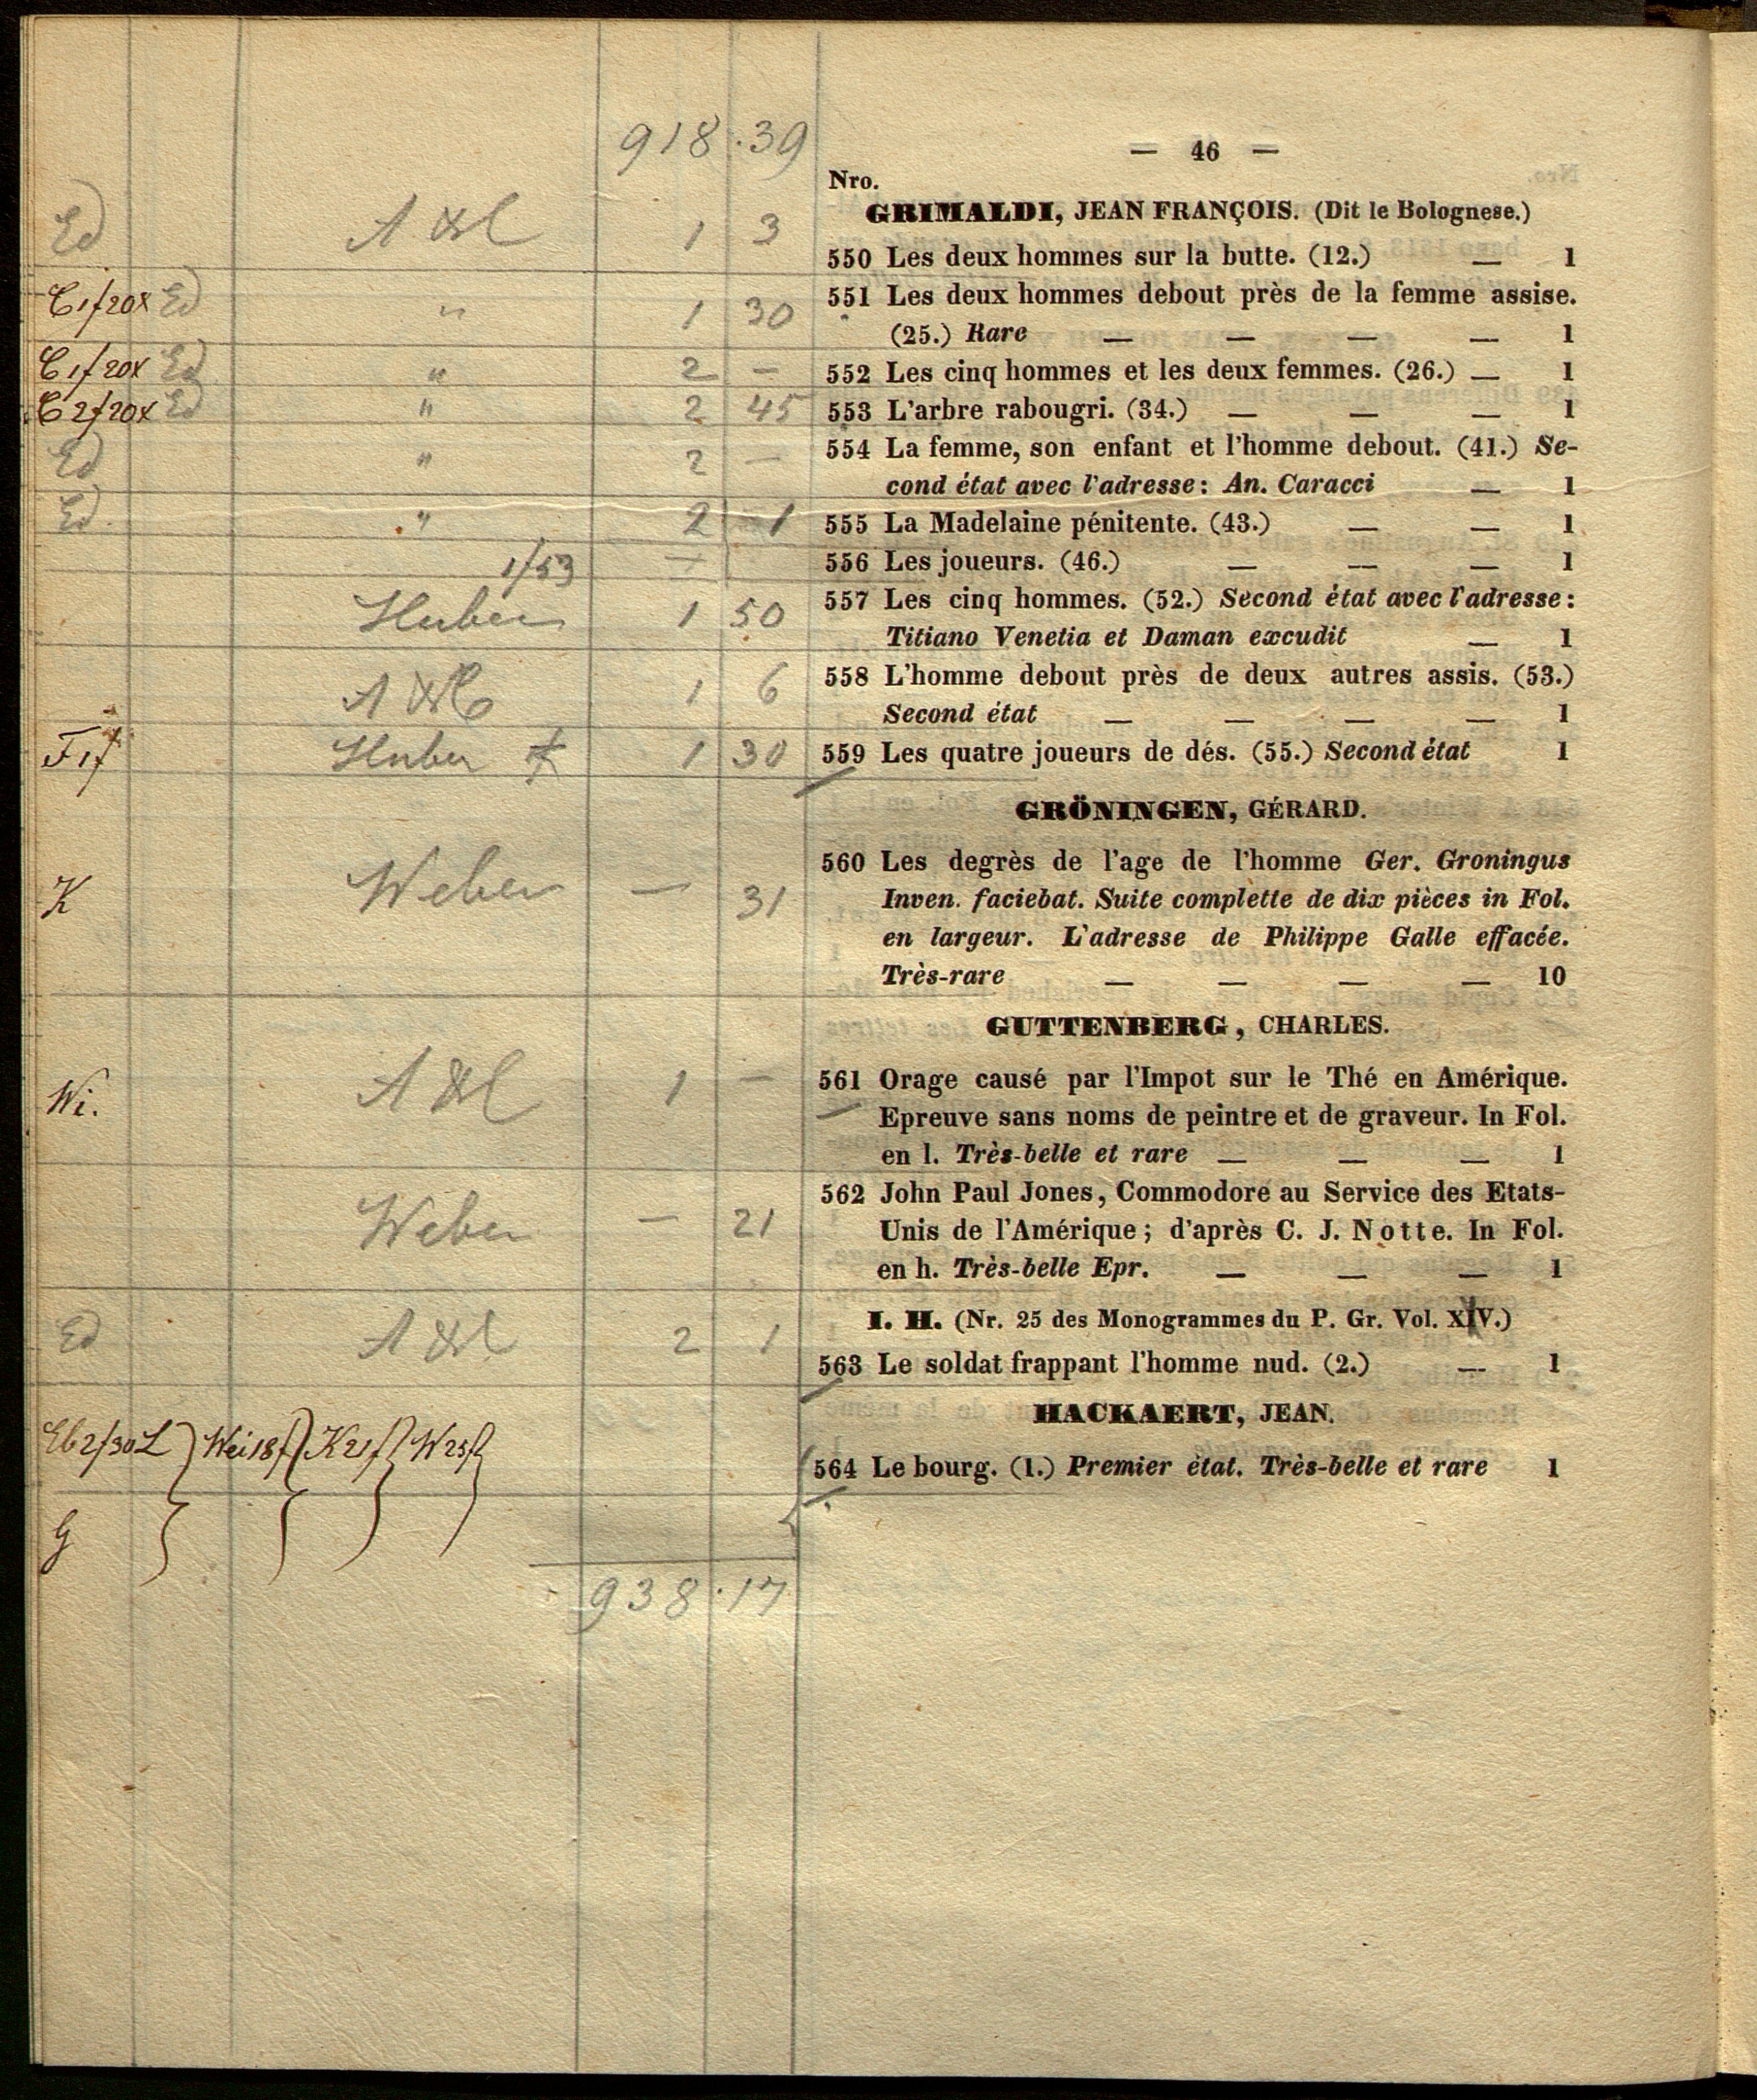 918 . 39
— 46 —
Nro.
GRIMALDI, JEAN FRANÇOIS. (Dit le Bolognese.)
Ed 1 3
550 Les deux hommes sur la butte. (12.) — 1
Ed " 1 30
551 Les deux hommes debout près de la femme assise.
(25.) Rare — — — — 1
Ed " 2 —
552 Les cinq hommes et les deux femmes. (26.) — 1
Ed " 2 45
553 L'arbre rabougri. (34.) — — — 1
Ed " 2 —
554 La femme, son enfant et l'homme debout. (41.) Se-
cond état avec l'adresse: An. Caracci — 1
Ed. " 2 1
555 La Madelaine pénitente. (43.) — — 1
1/53 —
556 Les joueurs. (46.) — — — 1
Huber 1 50
557 Les cinq hommes. (52.) Second état avec l'adresse:
Titiano Venetia et Daman excudit — 1
1 6
558 L'homme debout près de deux autres assis. (53.)
Second état — — — — 1
Huber 1 30
559 Les quatre joueurs de dés. (55.) Second état 1
GRÖNINGEN, GÉRARD.
K Weber — 31
560 Les degrès de l'age de l'homme Ger. Groningus
Inven. faciebat. Suite complette de dix pièces in Fol.
en largeur. L'adresse de Philippe Galle effacée.
Très-rare — — — — 10
GUTTENBERG, CHARLES.
Wi. 1 —
561 Orage causé par l'Impot sur le Thé en Amérique.
Epreuve sans noms de peintre et de graveur. In Fol.
en l. Très-belle et rare — — — 1
Weber — 21
562 John Paul Jones, Commodore au Service des Etats-
Unis de l'Amérique; d'après C. J. Notte. In Fol.
en h. Très-belle Epr. — — — 1
I. H. (Nr. 25 des Monogrammes du P. Gr. Vol. XIV.)
Ed 2 1
563 Le soldat frappant l'homme nud. (2.) — 1
HACKAERT, JEAN.
564 Le bourg. (1.) Premier état. Très-belle et rare 1
G
938 . 17